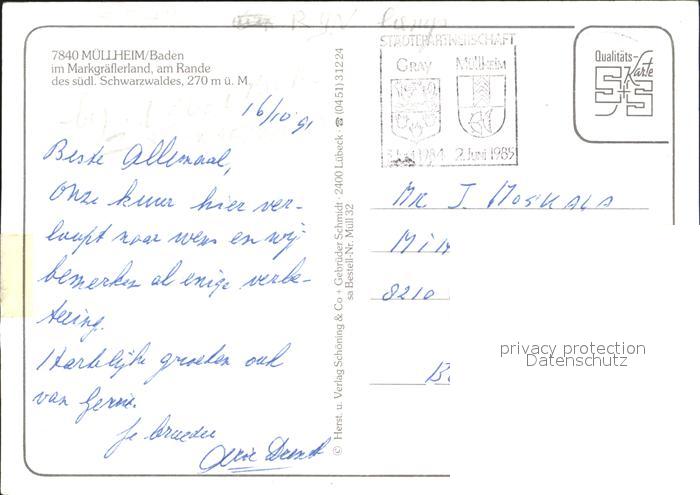 7840 MÜLLHEIM/Baden
im Markgräflerland, am Rande
des südl. Schwarzwaldes, 270 m ü. M.
16/10 91
Beste Allemaal,
Onze kuur hier ver-
loopt naar wens en wij
bemerken al enige verbe-
tering.
Hartelijke groeten ook
van Gerrie.
je broeder
© Herst. u. Verlag Schöning & Co + Gebrüder Schmidt · 2400 Lübeck · ☎ (0451) 31224
sa Bestell-Nr. Müll 32
STÄDTEPARTNERSCHAFT
GRAY Müllheim
1984 2. Juni 1985
Qualitäts-
Karte
S+S
Mr J. MOSKALA
8210
privacy protection
Datenschutz